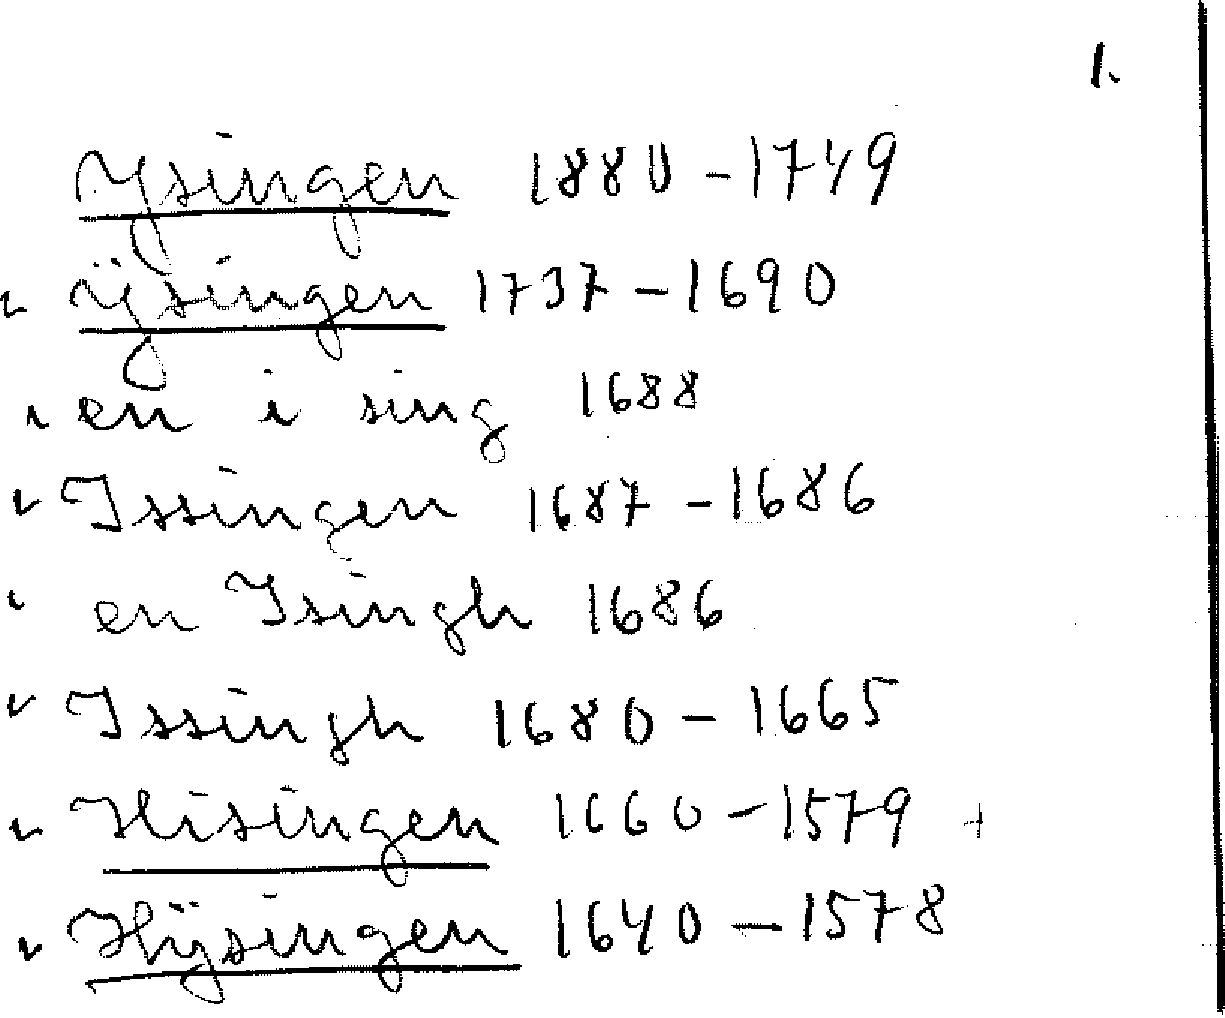 1.
Ysingen 1880 - 1749
ÿsingen 1737 - 1690
en i sing 1688
Issingen 1687 - 1686
en Isingh 1686
Issingh 1680 - 1665
Hisingen 1660 - 1579 +
Hÿsingen 1640 - 1578